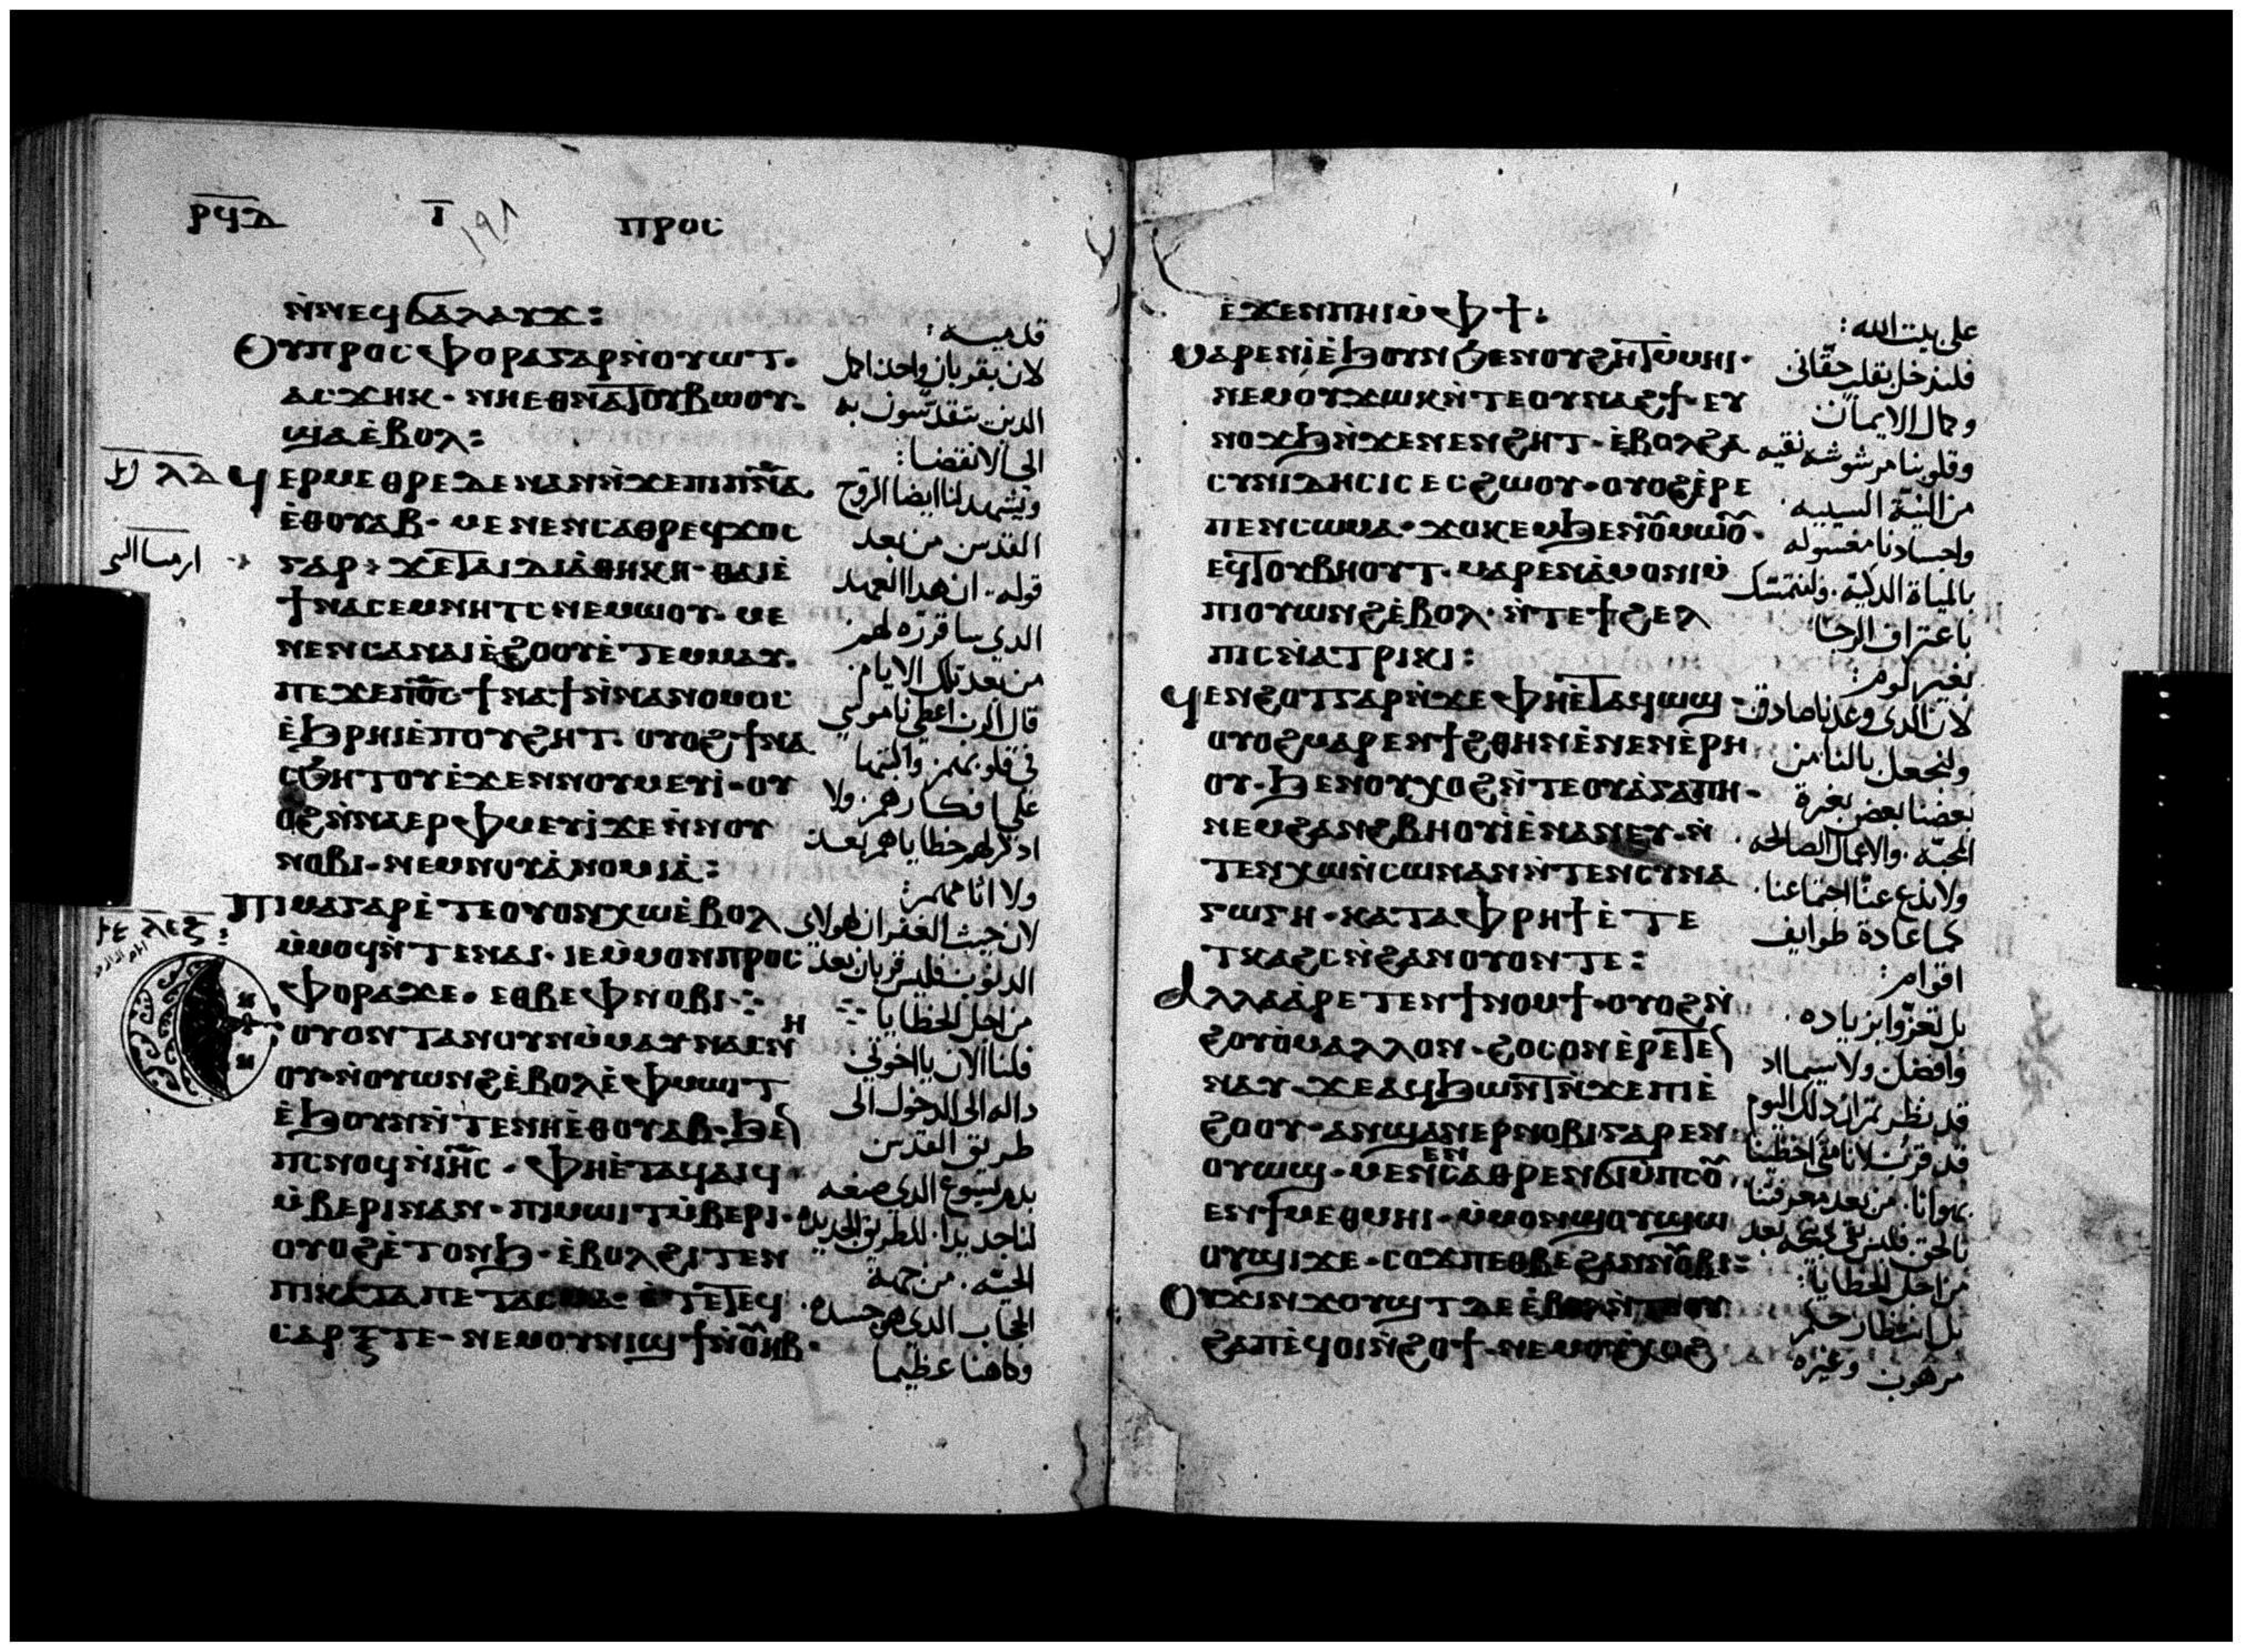 ⲣϥⲇ ⲓ ⲡⲣⲟⲥ
ⲛ̀ⲛⲉϥϭⲁⲗⲁⲩϫ:
ⲑⲩⲡⲣⲟⲥⲫⲟⲣⲁⲅⲁⲣⲛ̀ⲟⲩⲱⲧ·
ⲁⲥϫⲏⲕ· ⲛⲏⲉⲑⲛⲁⲧⲟⲩⲃⲱⲟⲩ·
ϣⲁⲉ̀ⲃⲟⲗ:
ϥⲉⲣⲙⲉⲑⲣⲉⲇⲉⲛⲁⲛⲛ̀ϫⲉⲡⲓⲡ̅ⲛ̅ⲁ̅
ⲉ̀ⲑⲟⲩⲁⲃ· ⲙⲉⲛⲉⲛⲥⲁⲑⲣⲉϥϫⲟⲥ
ⲅⲁⲣ· ϫⲉⲧⲁⲓⲇⲓⲁ̀ⲑⲏⲕⲏ· ⲑⲁⲓⲉ̀
ϯⲛⲁⲥⲉⲙⲛⲏⲧⲥⲛⲉⲙⲱⲟⲩ· ⲙⲉ
ⲛⲉⲛⲥⲁⲛⲁⲓⲉ̀ϩⲟⲟⲩⲉ̀ⲧⲉⲙⲙⲁⲩ·
ⲡⲉϫⲉⲡ̅ⲟ̅ⲥ̅· ϯⲛⲁϯⲛ̀ⲛⲁⲛⲟⲙⲟⲥ
ⲉ̀ϧⲣⲏⲓⲉ̀ⲡⲟⲩϩⲏⲧ· ⲟⲩⲟϩϯⲛⲁ
ⲥϧⲏⲧⲟⲩⲉ̀ϫⲉⲛⲛⲟⲩⲙⲉⲩⲓ̀· ⲟⲩ
ⲟϩⲛ̀ⲛⲁⲉⲣⲫⲙⲉⲩⲓ̀ϫⲉⲛ̀ⲛⲟⲩ
ⲛⲟⲃⲓ· ⲛⲉⲙⲛⲟⲩⲁ̀ⲛⲟⲙⲓⲁ̀:
ⲡⲓⲙⲁⲅⲁⲣⲉ̀ⲧⲉⲟⲩⲟⲛⲭⲱⲉ̀ⲃⲟⲗ
ⲙ̀ⲙⲟϥⲛ̀ⲧⲉⲛⲁⲓ· ⲓⲉⲙ̀ⲙⲟⲛⲡⲣⲟⲥ
ⲫⲟⲣⲁϫⲉ· ⲉⲑⲃⲉⲫⲛⲟⲃⲓ
ⲟⲩⲟⲛⲧⲁⲛⲟⲩⲛⲙ̀ⲙⲁⲩⲛⲁⲥⲛⲏ
ⲟⲩ· ⲛ̀ⲟⲩⲱⲛϩⲉ̀ⲃⲟⲗⲉ̀ⲫⲙⲱⲓⲧ
ⲉ̀ϧⲟⲩⲛⲛ̀ⲧⲉⲛⲏⲉ̀ⲑⲟⲩⲁⲃ· ϧⲉⲛ
ⲡⲥⲛⲟϥⲛ̀ⲓ̅ⲏ̅ⲥ̅· ⲫⲏⲉ̀ⲧⲁϥⲁⲓϥ
ⲙ̀ⲃⲉⲣⲓⲛⲁⲛ· ⲡⲓⲙⲱⲓⲧⲙ̀ⲃⲉⲣⲓ·
ⲟⲩⲟϩⲉ̀ⲧⲟⲛϧ· ⲉ̀ⲃⲟⲗϩⲓⲧⲉⲛ
ⲡⲓⲕⲁⲧⲁⲡⲉⲧⲁⲥⲙⲁ· ⲉ̀ⲧⲉⲧⲉϥ
ⲥⲁⲣⲝⲧⲉ· ⲛⲉⲙⲟⲩⲛⲓϣϯⲛ̀ⲟⲩⲏⲃ·
قدميه:
لان بقربان واحد اكمل
الدين يتقدسون به
الى الانقضا:
ويشهد لنا ايضا الروح
القدس من بعد
قوله· ان هدا العهد
الدي ساقرره لهم
من بعد تلك الايام
قال الرب اعطي ناموسي
في قلوبهم واكتبها
على افكارهم· ولا
ادكر لهم خطاياهم بعد
ولا اثامهم:
لان حيث الغفران لهولاي
الدنوب فليس قربان بعد
من اجل الخطايا
فلنا الان يا اخوتي
داله الى الدخول الى
طريق القدس
بدم يسوع الدي صنعه
لنا جديدا· للطريق الجديده
الحيه· من جهة
الحجاب الدي هو جسده
وكاهنا عظيما
ⲉ̀ϫⲉⲛⲡⲏⲓⲙ̀ⲫϯ:
ⲙⲁⲣⲉⲛⲓ̀ⲉ̀ϧⲟⲩⲛϧⲉⲛⲟⲩϩⲏⲧⲙ̀ⲙⲏⲓ·
ⲛⲉⲙⲟⲩϫⲱⲕⲛ̀ⲧⲉⲟⲩⲛⲁϩϯ· ⲉⲩ
ⲛⲟϫϧⲛ̀ϫⲉⲛⲉⲛϩⲏⲧ· ⲉ̀ⲃⲟⲗϩⲁ
ⲥⲩⲛⲓⲇⲏⲥⲓⲥⲉⲥϩⲱⲟⲩ· ⲟⲩⲟϩⲉ̀ⲣⲉ
ⲡⲉⲛⲥⲱⲙⲁ· ϫⲟⲕⲉⲙϧⲉⲛⲟⲩⲙⲱⲟⲩ·
ⲉϥⲧⲟⲩⲃⲏⲟⲩⲧ· ⲙⲁⲣⲉⲛⲁ̀ⲙⲟⲛⲓⲙ̀
ⲡⲓⲟⲩⲱⲛϩⲉ̀ⲃⲟⲗ· ⲛ̀ⲧⲉϯϩⲉⲗ
ⲡⲓⲥⲛ̀ⲁⲧⲣⲓⲕⲓ:
ϥⲉⲛϩⲟⲧⲅⲁⲣⲛ̀ϫⲉⲫⲏⲉ̀ⲧⲁϥⲱϣ·
ⲟⲩⲟϩⲙⲁⲣⲉⲛϯϩⲑⲏⲛⲉ̀ⲛⲉⲛⲉ̀ⲣⲏ
ⲟⲩ· ϧⲉⲛⲟⲩⲭⲟϩⲛ̀ⲧⲉⲟⲩⲁ̀ⲅⲁⲡⲏ·
ⲛⲉⲙϩⲁⲛϩⲃⲏⲟⲩⲓ̀ⲉ̀ⲛⲁⲛⲉⲩ· ⲛ̀
ⲧⲉⲛⲭⲱⲛ̀ⲥⲱⲛⲁⲛⲛ̀ⲧⲉⲛⲥⲩⲛⲁ
ⲅⲱⲅⲏ· ⲕⲁⲧⲁⲫⲣⲏϯⲉ̀ⲧⲉ
ⲧⲕⲁϩⲥⲛ̀ϩⲁⲛⲟⲩⲟⲛⲧⲉ:
ⲁⲗⲗⲁⲁ̀ⲣⲉⲧⲉⲛϯⲛⲟⲙϯ· ⲟⲩⲟϩⲛ̀
ϩⲟⲩⲟ̀ⲙⲁⲗⲗⲟⲛ· ϩⲟⲥⲟⲛⲉ̀ⲣⲉⲧⲉⲛ
ⲛⲁⲩ· ϫⲉⲁϥϧⲱⲛⲧⲛ̀ϫⲉⲡⲓⲉ̀
ϩⲟⲟⲩ· ⲁⲛϣⲁⲛⲉⲣⲛⲟⲃⲓⲅⲁⲣⲉⲛ
ⲟⲩⲱϣ· ⲙⲉⲛⲉⲛⲥⲁⲑⲣⲉⲛϭⲓⲙ̀ⲡⲥⲟⲩ
ⲉⲛϯⲙⲉⲑⲙⲏⲓ· ⲙ̀ⲙⲟⲛϣⲟⲩϣⲱ
ⲟⲩϣⲓϫⲉ· ⲥⲟϫⲡⲉⲑⲃⲉϩⲁⲛⲛⲟⲃⲓ:
ⲟⲩϫⲓⲛϫⲟⲩϣⲧⲇⲉⲉ̀ⲃⲟⲗⲛ̀ⲧⲉⲟⲩ
ϩⲁⲡⲉϥⲟⲓⲛ̀ϩⲟϯ· ⲛⲉⲙⲟⲩⲭⲟϩ
على بيت الله:
فلندخل بقلب حقاني
وكمال الايمان
وقلوبنا مرشوشه نقيه
من النية السييه·
واجسادنا مغسوله
بالمياه الدكية· ولنتمسك
باعتراف الرجا
بغير لوم:
لان الدي وعدنا صادق
ولنجعل بالنا من
بعضنا بعض بغيرة
المحبه· والاعمال الصالحه·
ولا ندع عنا اجتماعنا·
كما عادة طوايف
اقوام:
بل تعزوا بزياده·
وافضل ولاسيما اد
قد قرب لانا متى اخطينا
بهوانا· من بعد معرفتنا
من اجل الخطايا:
بل انتظار حكم
مرهوب وغيره